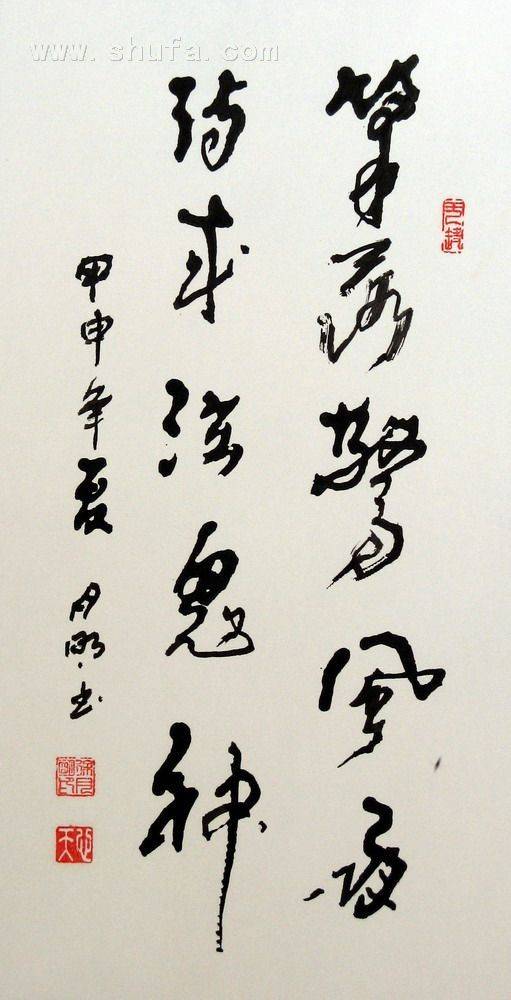 www.shufa.com
筆落驚風雨
詩成泣鬼神
甲申年夏 月明书